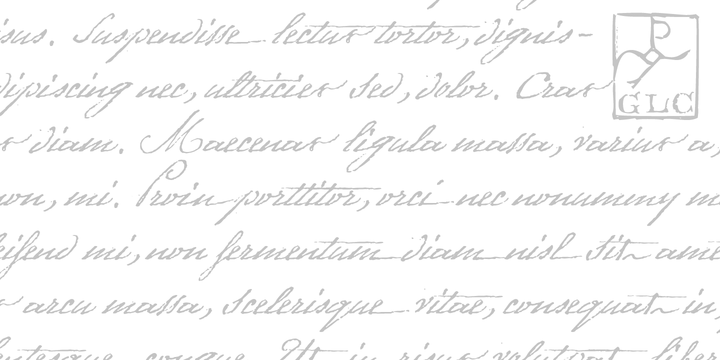 isus. Suspendisse lectus tortor, dignis-
dipiscing nec, ultricies sed, dolor. Cras
GLC
s diam. Maecenas ligula massa, varius a,
non, mi. Proin porttitor, orci nec nonummy m
eifend mi, non fermentum diam nisl sit ame
s arcu massa, scelerisque vitae, consequat in,
entesque congue. Ut in risus volutpat liber